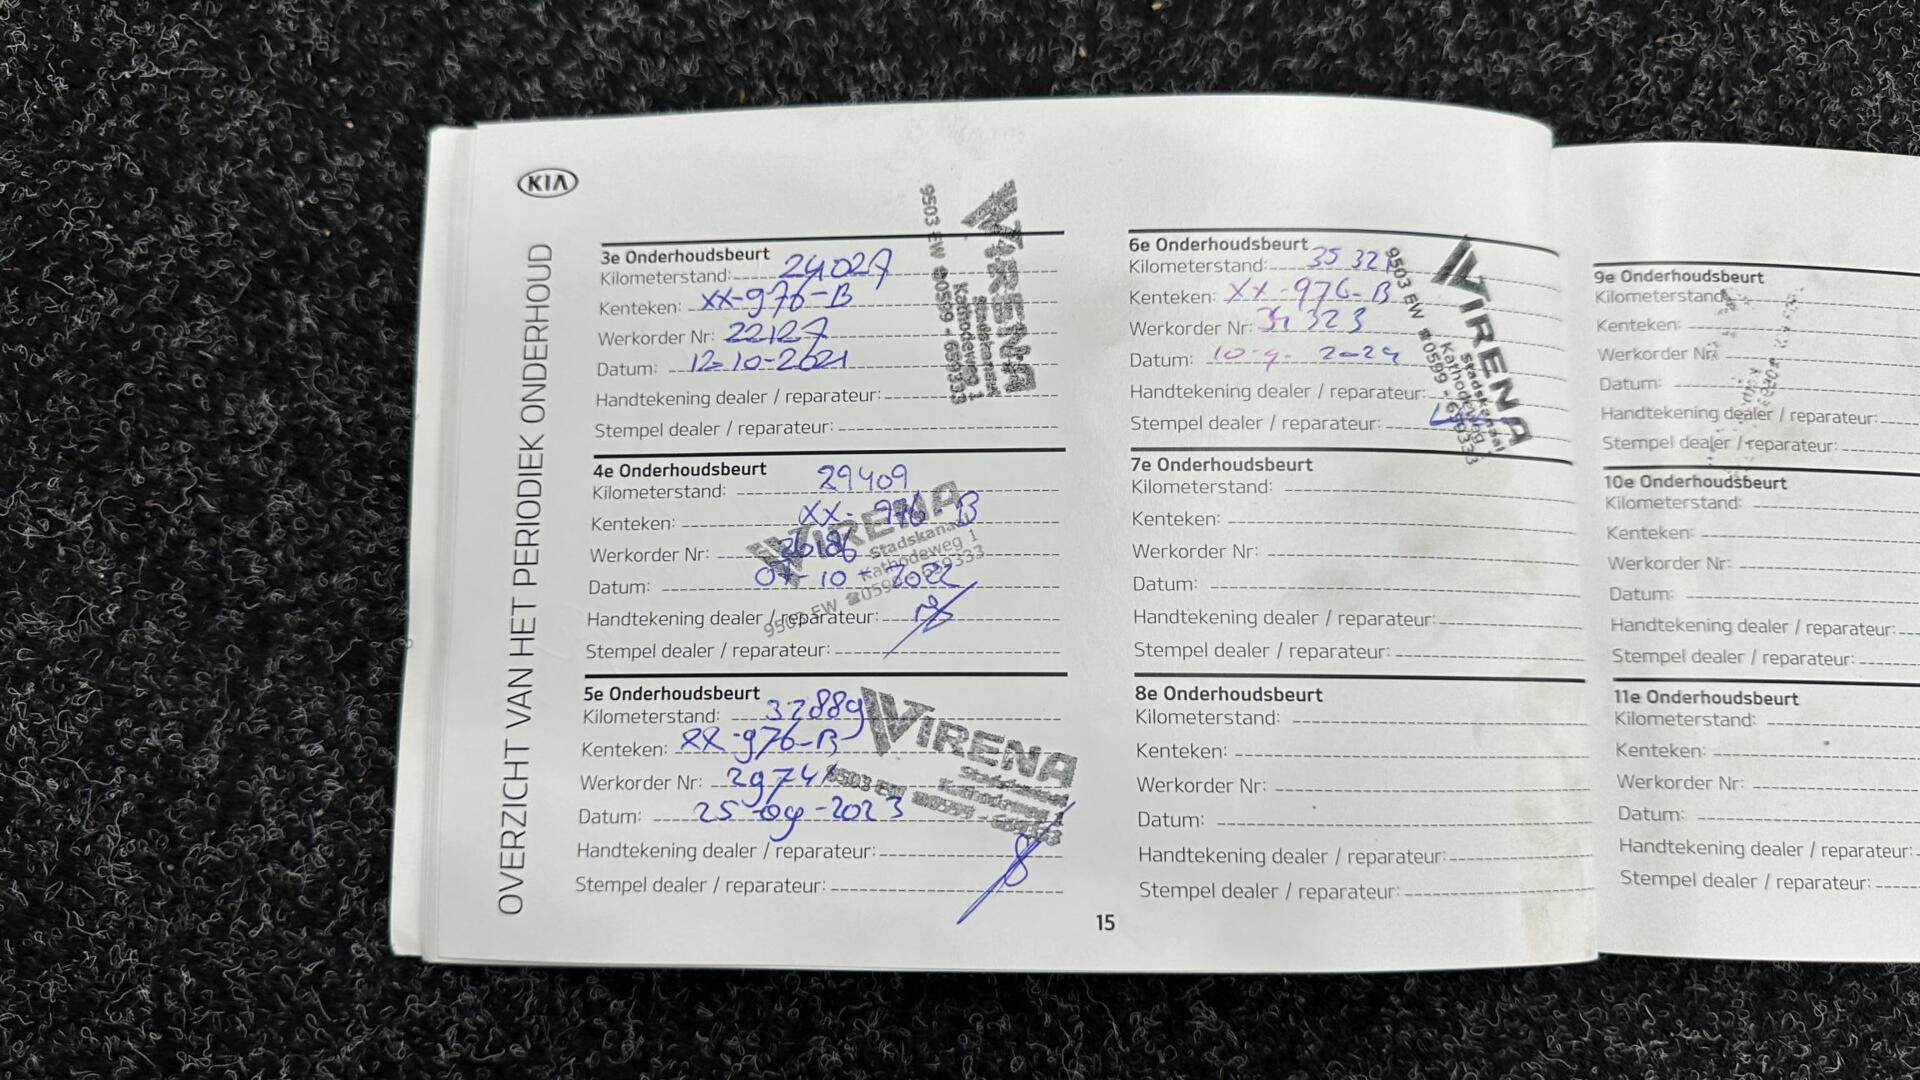 KIA
OVERZICHT VAN HET PERIODIEK ONDERHOUD
3e Onderhoudsbeurt
Kilometerstand: 24027
Kenteken: XX-976-B
Werkorder Nr: 22127
Datum: 12-10-2021
Handtekening dealer / reparateur:
Stempel dealer / reparateur:
VIRENA
Stadskanaal
Kathodeweg 1
9503 EW ☎0599 - 659333
4e Onderhoudsbeurt
Kilometerstand: 29409
Kenteken: XX-976-B
Werkorder Nr:
Datum: 07-10-2022
Handtekening dealer / reparateur:
Stempel dealer / reparateur:
VIRENA
Stadskanaal
Kathodeweg 1
9503 EW ☎0599 - 659333
5e Onderhoudsbeurt
Kilometerstand: 32889
Kenteken: XX-976-B
Werkorder Nr:
Datum: 25-09-2023
Handtekening dealer / reparateur:
Stempel dealer / reparateur:
VIRENA
Stadskanaal
Kathodeweg 1
9503 EW ☎0599 - 659333
6e Onderhoudsbeurt
Kilometerstand:
Kenteken: XX-976-B
Werkorder Nr:
Datum: 10-9-2024
Handtekening dealer / reparateur:
Stempel dealer / reparateur:
VIRENA
Stadskanaal
Kathodeweg 1
9503 EW ☎0599 - 659333
7e Onderhoudsbeurt
Kilometerstand:
Kenteken:
Werkorder Nr:
Datum:
Handtekening dealer / reparateur:
Stempel dealer / reparateur:
8e Onderhoudsbeurt
Kilometerstand:
Kenteken:
Werkorder Nr:
Datum:
Handtekening dealer / reparateur:
Stempel dealer / reparateur:
15
9e Onderhoudsbeurt
Kilometerstand:
Kenteken:
Werkorder Nr:
Datum:
Handtekening dealer / reparateur:
Stempel dealer / reparateur:
10e Onderhoudsbeurt
Kilometerstand:
Kenteken:
Werkorder Nr:
Datum:
Handtekening dealer / reparateur:
Stempel dealer / reparateur:
11e Onderhoudsbeurt
Kilometerstand:
Kenteken:
Werkorder Nr:
Datum:
Handtekening dealer / reparateur:
Stempel dealer / reparateur: